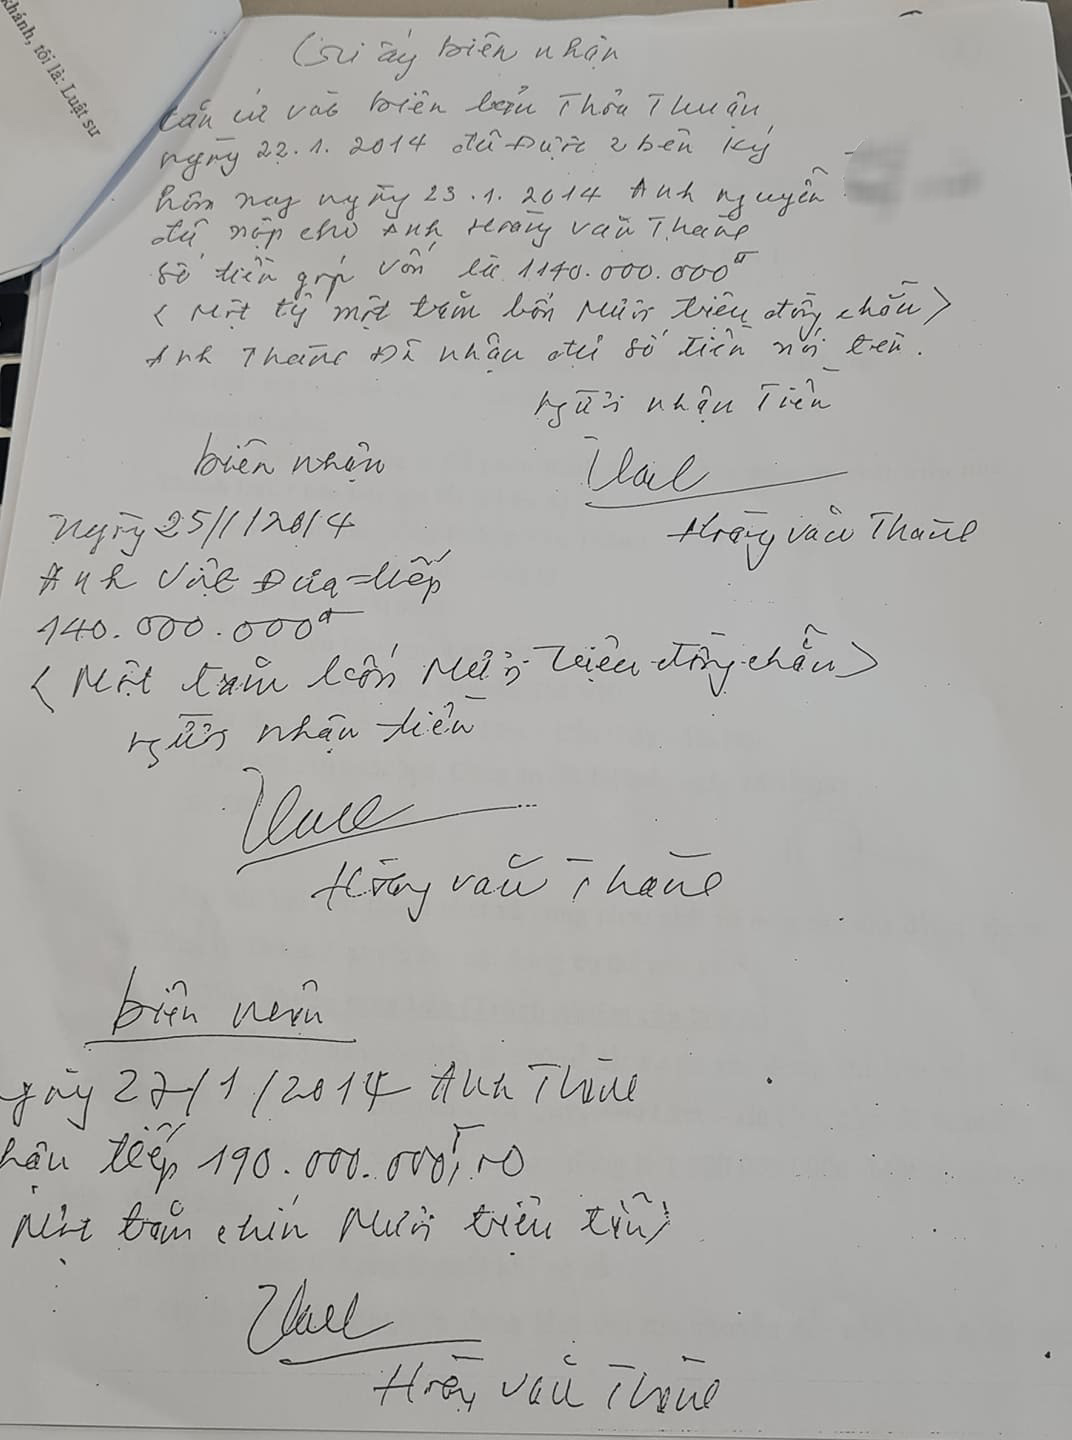 khánh, tôi là: Luật sư
Giấy biên nhận
Căn cứ vào biên bản Thỏa Thuận
ngày 22.1.2014 đã Được 2 bên ký
hôm nay ngày 23.1.2014 Anh nguyễn
đã nộp cho Anh Hoàng văn Thành
số tiền góp vốn là 1140.000.000đ
( Một tỷ một trăm bốn Mươi triệu đồng chẵn )
Anh Thành Đã nhận đủ số tiền nói trên.
người nhận Tiền
Hoàng văn Thành
biên nhận
Ngày 25/1/2014
Anh Việt Đưa tiếp
140.000.000đ
( Một trăm bốn Mươi Triệu đồng chẵn )
người nhận tiền
Hoàng văn Thành
biên nhận
gày 27/1/2014 Anh Thành
hận tiếp 190.000.000
Một trăm chín Mươi triệu
Hoàng văn Thành